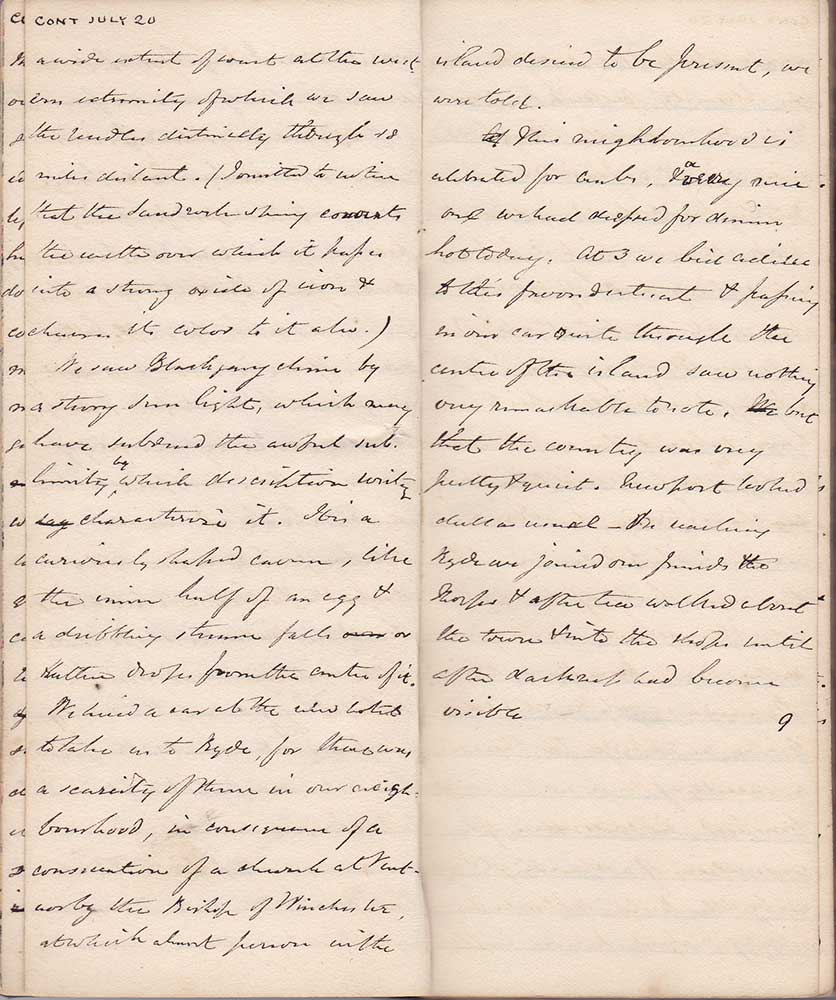 CONT JULY 20
a wide extent of coast at the west
ern extremity of which we saw
the needles distinctly though 18
miles distant. (I omitted to notice
that the Sandrock spring converts
the earth over which it passes
into a strong oxide of iron &
changes its color to it also.)
We saw Blackgang chine by
a strong sun light, which may
have subdued the awful sub.
limity by which description writers
say characterise it. It is a
curiously shaped cavern, like
the inner half of an egg &
a dribbling stream falls over or
rather drops from the centre of it.
We hired a car at the new hotel
to take us to Ryde, for there was
a scarcity of them in our neigh-
bourhood, in consequence of a
consecration of a church at Vent-
nor by the Bishop of Winchester,
at which almost person in the
island desired to be present, we
were told.
This neighbourhood is
celebrated for crabs, a very nice
one we had dressed for dinner
hot today. At 3 we bid adieu
to this favored retreat & passing
in our car quite through the
centre of the island saw nothing
very remarkable to note, but
that the country was very
pretty & quiet. Newport looked
dull as usual - On reaching
Ryde we joined our friends the
& after tea walked about
the town & into the shops until
after darkness had become
visible 9